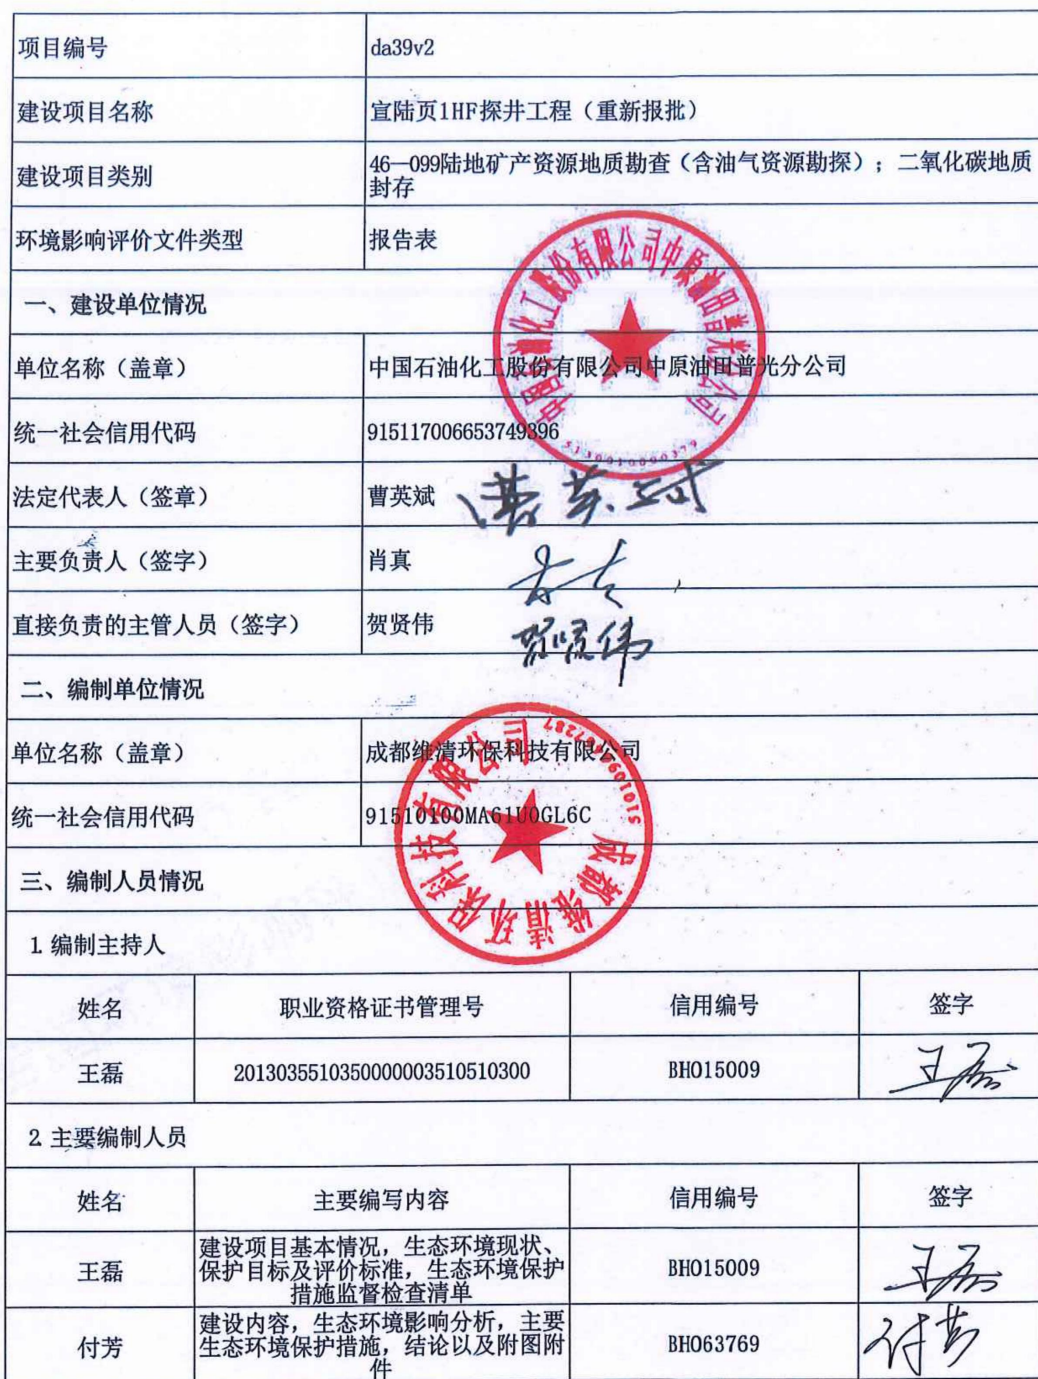 项目编号 da39v2
建设项目名称 宣陆页1HF探井工程（重新报批）
建设项目类别 46—099陆地矿产资源地质勘查（含油气资源勘探）；二氧化碳地质
封存
环境影响评价文件类型 报告表
一、建设单位情况
单位名称（盖章） 中国石油化工股份有限公司中原油田普光分公司
统一社会信用代码 915117006653749396
法定代表人（签章） 曹英斌
主要负责人（签字） 肖真
直接负责的主管人员（签字） 贺贤伟 贺贤伟
二、编制单位情况
单位名称（盖章） 成都维清环保科技有限公司
统一社会信用代码 91510100MA61U0GL6C
成都维清环保科技有限公司
三、编制人员情况
1.编制主持人
姓名 职业资格证书管理号 信用编号 签字
王磊 2013035510350000003510510300 BH015009 王磊
2.主要编制人员
姓名 主要编写内容 信用编号 签字
王磊 建设项目基本情况，生态环境现状、
保护目标及评价标准，生态环境保护
措施监督检查清单 BH015009 王磊
付芳 建设内容，生态环境影响分析，主要
生态环境保护措施，结论以及附图附
件 BH063769 付芳